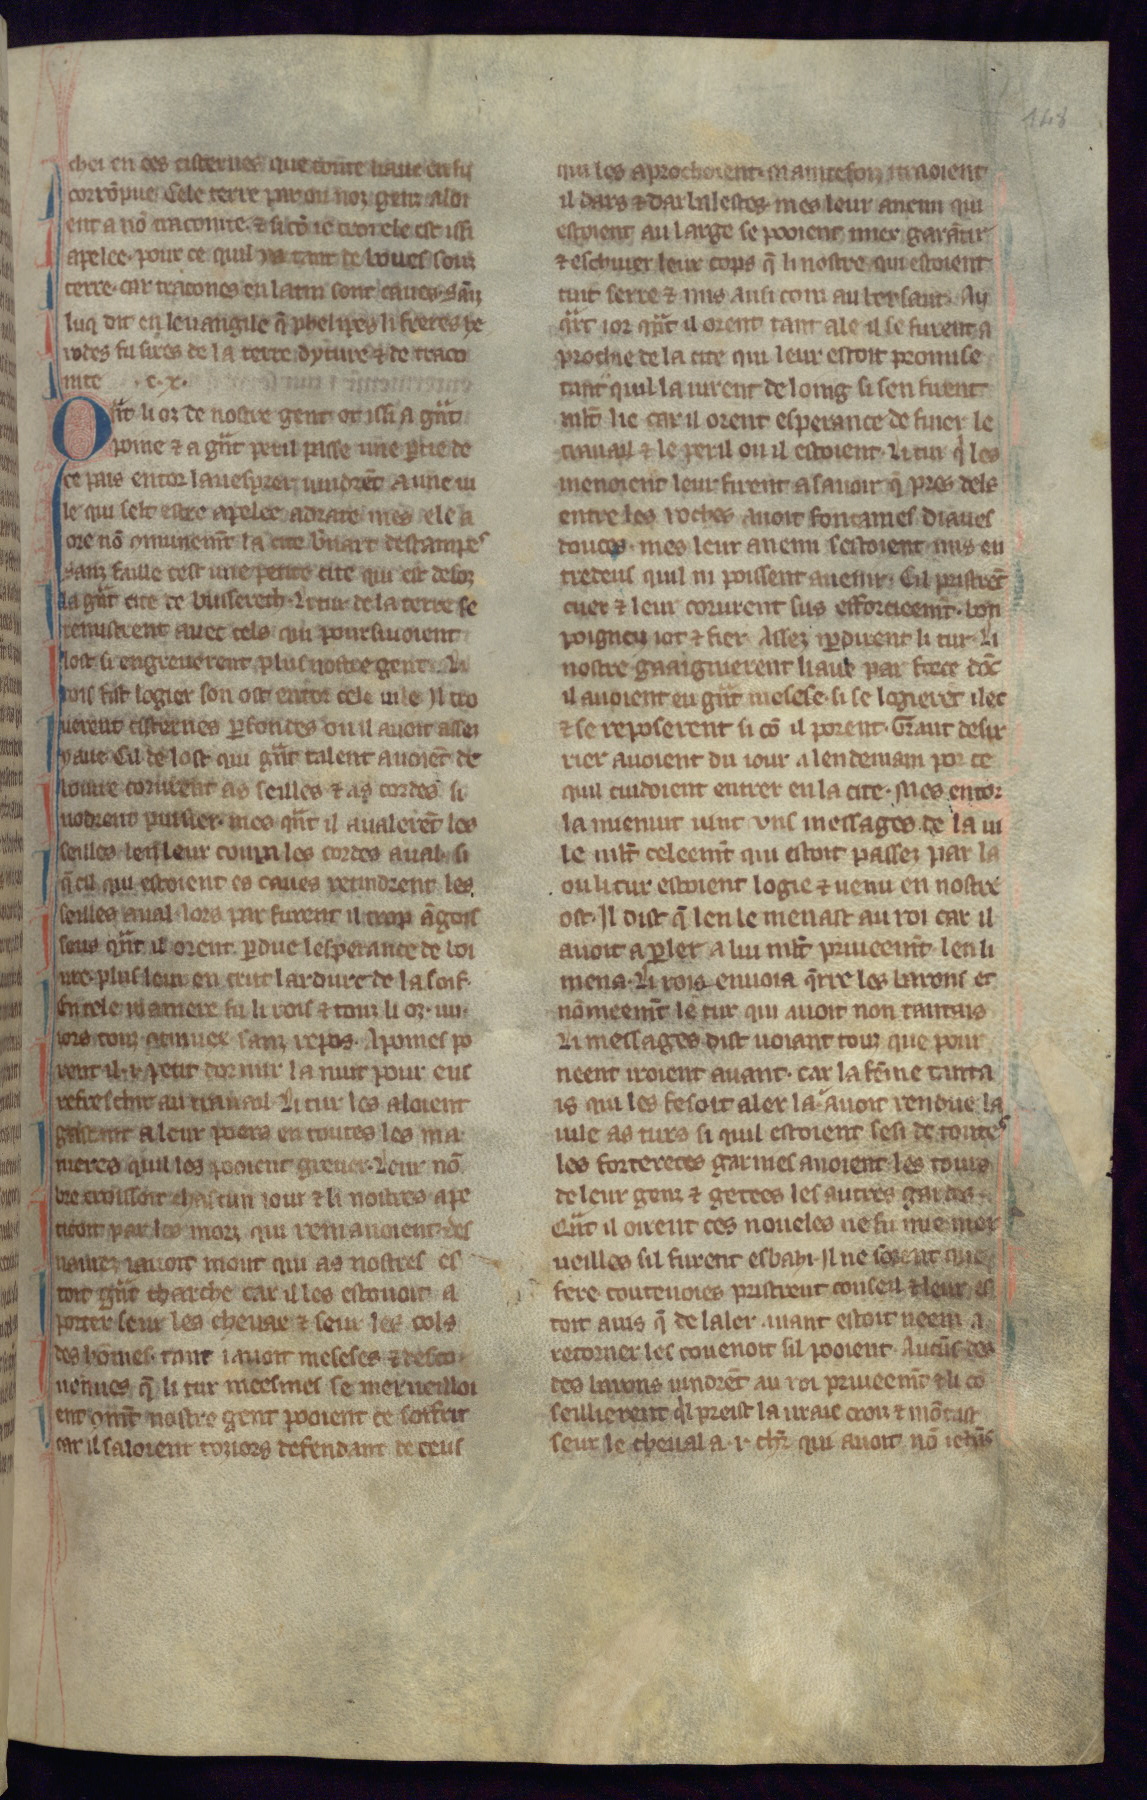 148
chei en ces cisternes que toute liaue en fu
corrõpue. Cele terre par ou noz genz aloi
ent a nõ traconite. & si cõ ie croi ele est issi
apelee. pour ce quil ya tant de boues souz
terre. car tracones en latin sont caues. sãĩz
luq̃ dit en leuangile q̃ phelipes li freres he
rodes fu sires de la terre dyture & de traco
nite .c.x.
Qñt li oz de nostre gent ot issi a gñt
poine & a gñt peril passe une ptie de
ce pais entor la uespree uindrẽt a une ui
le qui selt estre apelee adrate mes ele a
ore nõ ɔmunemẽt la cite bñart destampes
sanz faille cest une petite cite qui est desoz
la gñt cite de buisserech. Li tur de la terre se
remistrent auec cels qui poursiuoient
lost si engreuerent plus nostre gent. Li
rois fist logier son ost entor cele uile. Il tro
uerent cisternes pfondes ou il auoit assez
yaue. Cil de lost qui gñt talent auoiẽt de
boiure corurent as seilles & as cordes si
uodrent puisier. mes qñt il aualerẽt les
seilles len leur coupa les cordes aual. si
q̃ cil qui estoient es caues retindrent les
seilles aual. lors par furent il trop ãgois
seus qñt il orent pdue lesperance de boi
ure. plus leur en crut lardure de la soif.
En tele maniere fu li rois & touz li oz .iiii.
iors touz ɔtinues sanz repos. A poines po
rent il .i. petit dormir la nuit pour eus
refreschir au trauail. Li tur les aloient
gastant a leur poers en toutes les ma
nieres quil les pooient greuer. Leur nõ
bre croissoit chascun iour & li nostres ape
ticoit par les morz qui remanoient. des
naurez iauoit mout qui as nostres es
toit gñt charche car il les estouoit a
porter seur les cheuax & seur les cols
des hõmes. tant iauoit meseses & desco
uenues q̃ li tur meesmes se merueilloi
ent ɔmẽt nostre gent pooient ce soffrir
car il saloient toziors defendant de ceus
qui les aprochoient. maintesfoiz traoient
il dars & darbalestes mes leur anemi qui
estoient au large se pooient mier garãtir
& eschiuer leur cops q̃ li nostre qui estoient
tuit serre & mis ausi com au bersaut. Au
q̃rt ior qñt il orent tant ale il se furent a
prochie de la cite qui leur estoit promise
tant quil la uirent de loing si sen firent
mlt̃ lie car il orent esperance de finer le
trauail & le peril ou il estoient. Li tur q̃ les
menoient leur firent a sauoir q̃ pres dels
entre les roches auoit fontaines diaues
douces. mes leur anemi sestoient mis en
tredeus quil ni poissent auenir. Cil pristrẽt
cuer & leur corurent sus efforcieemt. bon
poigneiz iot & fier. Assez pdirent li tur. Li
nostre gaaignierent liaue par force dõt
il auoient eu gñt mesese. si se logierẽt ilec
& se reposerent si cõ il porent. Grant desir
rier auoient du iour a lendemain por ce
quil cuidoient entrer en la cite. Mes entor
la mienuit uint uns messages de la ui
le mlt̃ celeemt qui estoit passez par la
ou li tur estoient logie & uenu en nostre
ost. Il dist q̃ len le menast au roi car il
auoit a pler a lui mlt̃ priueemt. len li
mena. Li rois enuoia q̃rre les barons et
nõmeemt le tur qui auoit non tantais
Li messages dist uoiant touz que pour
neent iroient auant. car la fẽme tanta
is qui les fesoit aler la auoit rendue la
uile as turs si quil estoient sesi de toutes
les forterèces garnies auoient les tours
de leur genz & getees les autres gardes.
Qñt il oirent ces noueles ne fu mie mer
ueilles sil furent esbahi. Il ne sorent que
fere. toutesuoies pristrent conseil & leur es
toit auis q̃ de laler auant estoit neenz a
retorner les couenoit sil pooient. Aucũs des
des barons uindrẽt au roi priueemt & li cõ
seillierent q̃l preist la uraie croiz & mõtast
seur le cheual a .i. chr̃ qui auoit nõ iehãs